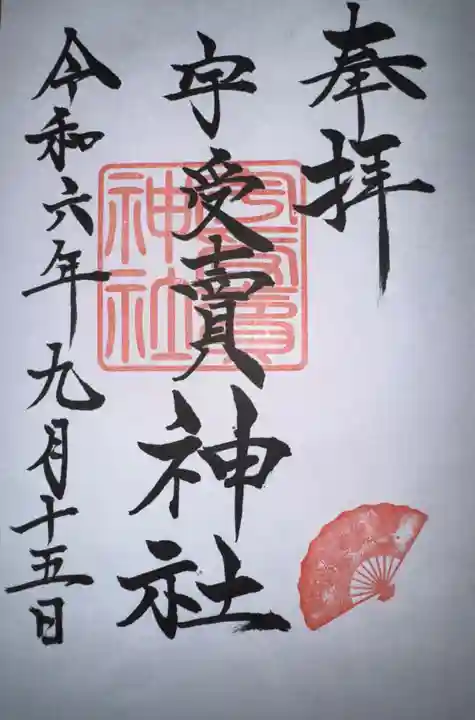 奉拝
宇受賣神社
宇受賣神社
令和六年九月十五日